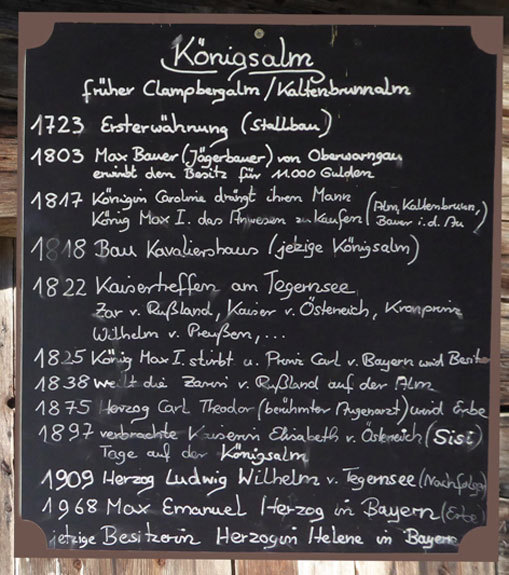 Königsalm
früher Clampbergalm/Kaltenbrunnalm
1723 Ersterwähnung (Stallbau)
1803 Max Bauer (Jägerbauer) von Oberwarngau
erwirbt den Besitz für 11.000 Gulden
1817 Königin Caroline drängt ihren Mann
König Max I. das Anwesen zu kaufen (Alm, Kaltenbrunn,
Bauer i.d. Au)
1818 Bau Kavaliershaus (jetzige Königsalm)
1822 Kaisertreffen am Tegernsee
Zar v. Rußland, Kaiser v. Österreich, Kronprinz
Wilhelm v. Preußen,...
1825 König Max I. stirbt u. Prinz Carl v. Bayern wird Besitz
1838 weilt die Zarin v. Rußland auf der Alm
1875 Herzog Carl Theodor (berühmter Augenarzt) wird Erbe
1897 verbrachte Kaiserin Elisabeth v. Österreich (Sisi)
Tage auf der Königsalm
1909 Herzog Ludwig Wilhelm v. Tegernsee (Nachfolger
1968 Max Emanuel Herzog in Bayern (Erbe)
jetzige Besitzerin Herzogin Helene in Bayern